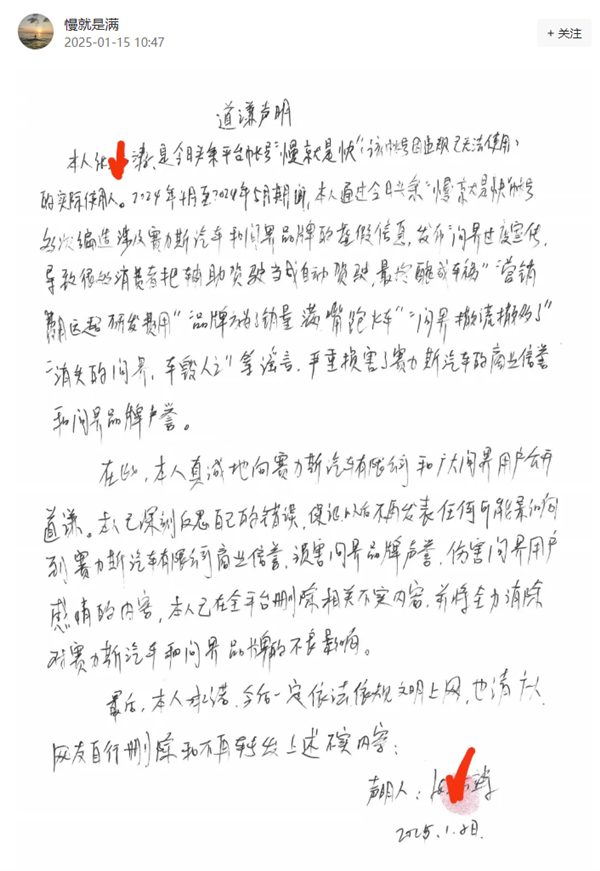 慢就是满
2025-01-15 10:47
+ 关注
道谦声明
本人 涛,是今日头条平台帐号"慢就是快"(该帐号因违规已无法使用)
的实际使用人。2024年4月至2024年5月期间,本人通过今日头条"慢就是快"帐号
多次编造涉及赛力斯汽车和问界品牌的虚假信息,发布"问界过度宣传,
导致很多消费者把辅助驾驶当成自动驾驶,最终酿成车祸""营销
费用远超研发费用""品牌方为了销量满嘴跑火车""问界撒谎撒多了"
"消失的问界,车毁人亡"等谣言,严重损害了赛力斯汽车的商业信誉
和问界品牌声誉。
在此,本人真诚地向赛力斯汽车有限公司和广大问界用户公开
道谦。本人已深刻反思自己的错误,保证以后不再发表任何可能影响
到赛力斯汽车有限公司商业信誉、损害问界品牌声誉、伤害问界用户
感情的内容,本人已在全平台删除相关不实内容,并将全力消除
对赛力斯汽车和问界品牌的不良影响。
最后,本人承诺,今后一定依法依规文明上网,也请广大
网友自行删除和不再转发上述不实内容;
声明人:
2025.1. 日.